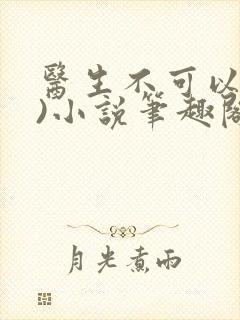 醫生不可以
)小說筆趣閣
月光煮雨